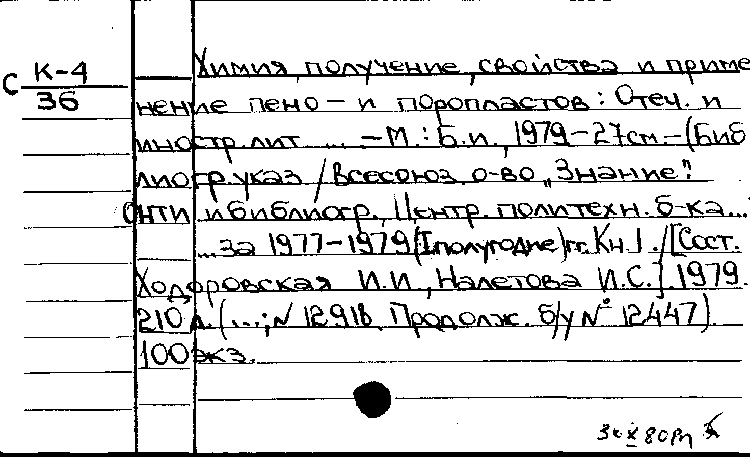 С К-4
36
Химия, получение, свойства и приме
нение пено- и поропластов: Отеч. и
иностр. лит ... -М.: Б.и., 1979-27см.-(Биб
лиогр. указ / Всесоюз. о-во „Знание".
ОНТИ и библиогр., Центр. политехн. б-ка...
...за 1977-1979(I полугодие)гг. Кн. 1. /[Сост.
Ходоровская И.И., Налетова И.С.]. 1979.
210 л. (...; N 1291в. Продолж. б/у N° 12447).
100 экз.